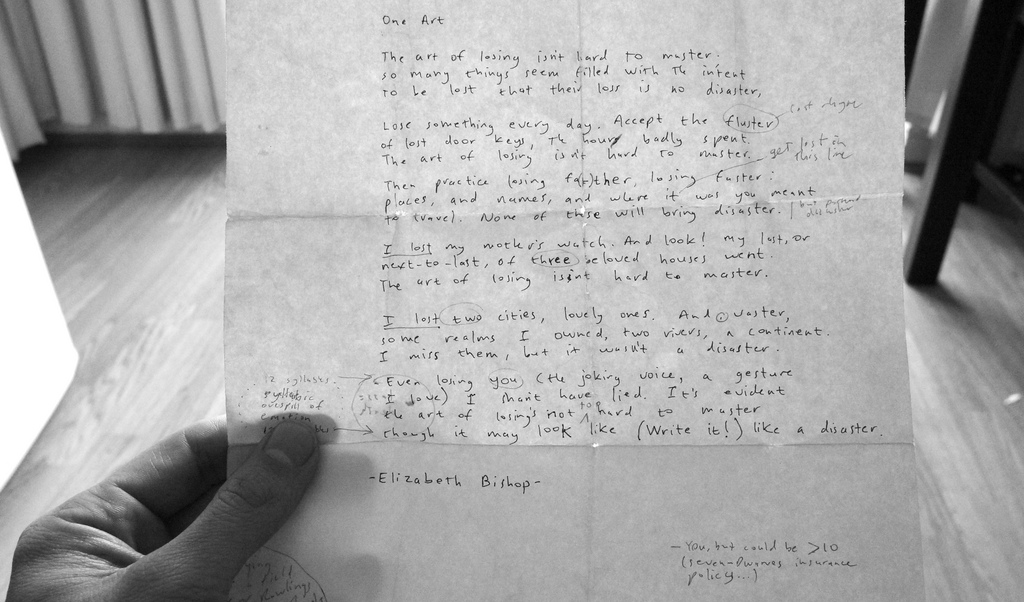 One Art
The art of losing isn't hard to master:
so many things seem filled with the intent
to be lost that their loss is no disaster,
Lose something every day. Accept the fluster
of lost door keys, the hour badly spent.
The art of losing isn't hard to master.
get lost in
this line
Then practice losing fa(r)ther, losing faster:
places, and names, and where it was you meant
to travel. None of these will bring disaster.
I lost my mother's watch. And look! my last, or
next-to-last, of three beloved houses went.
The art of losing isn't hard to master.
I lost two cities, lovely ones. And vaster,
some realms I owned, two rivers, a continent.
I miss them, but it wasn't a disaster.
12 syllables
syllabic
overspill of
emotion
- Even losing you (the joking voice, a gesture
I love) I shan't have lied. It's evident
the art of losing's not too hard to master
though it may look like (Write it!) like a disaster.
-Elizabeth Bishop-
- You, but could be >10
(seven-Dwarves insurance
policy...)